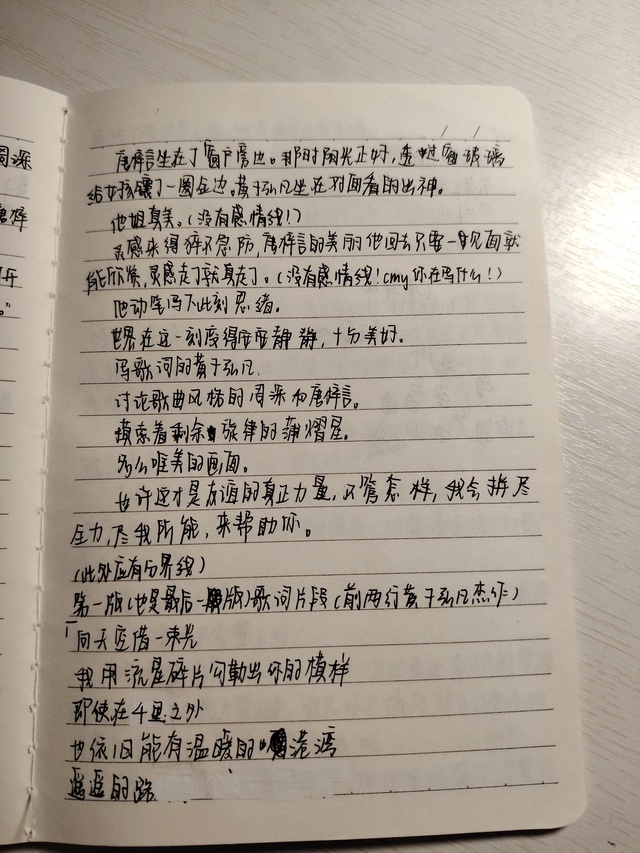 唐梓言坐在了窗户旁边。那时阳光正好，透过窗玻璃
给女孩镶了一圈金边。黄子弘凡坐在对面看的出神。
他姐真美。（没有感情线！）
灵感来得猝不急防，唐梓言的美丽他回去只要一见面就
能欣赏，灵感走了就真走了。（没有感情线！cmy你在写什么！）
他动笔写下此刻思绪。
世界在这一刻变得安安静静，十分美好。
写歌词的黄子弘凡
讨论歌曲风格的周深和唐梓言。
摸索着剩余旋律的蒲熠星。
多么唯美的画面。
也许这才是友谊的真正力量，不管怎样，我会拼尽
全力，尽我所能，来帮助你。
（此处应有分界线）
第一版（也是最后一版）歌词片段（前两行黄子弘凡杰作）
向天空借一束光
我用流星碎片勾勒出你的模样
即使在千里之外
也依旧能有温暖的港湾
遥遥的路
周深
梓
开
。”